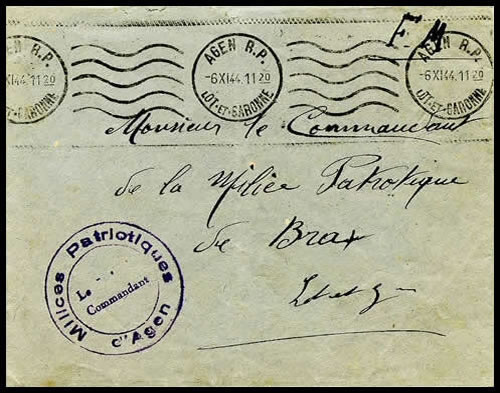 F M
AGEN R.P.
-6 XI 44. 11 20
LOT-ET-GARONNE
AGEN R.P.
-6 XI 44. 11 20
LOT-ET-GARONNE
AGEN R.P.
-6 XI 44. 11 20
LOT-ET-GARONNE
Monsieur le Commandant
de la Milice Patriotique
de Brax
Milices Patriotiques
d'Agen
Le
Commandant